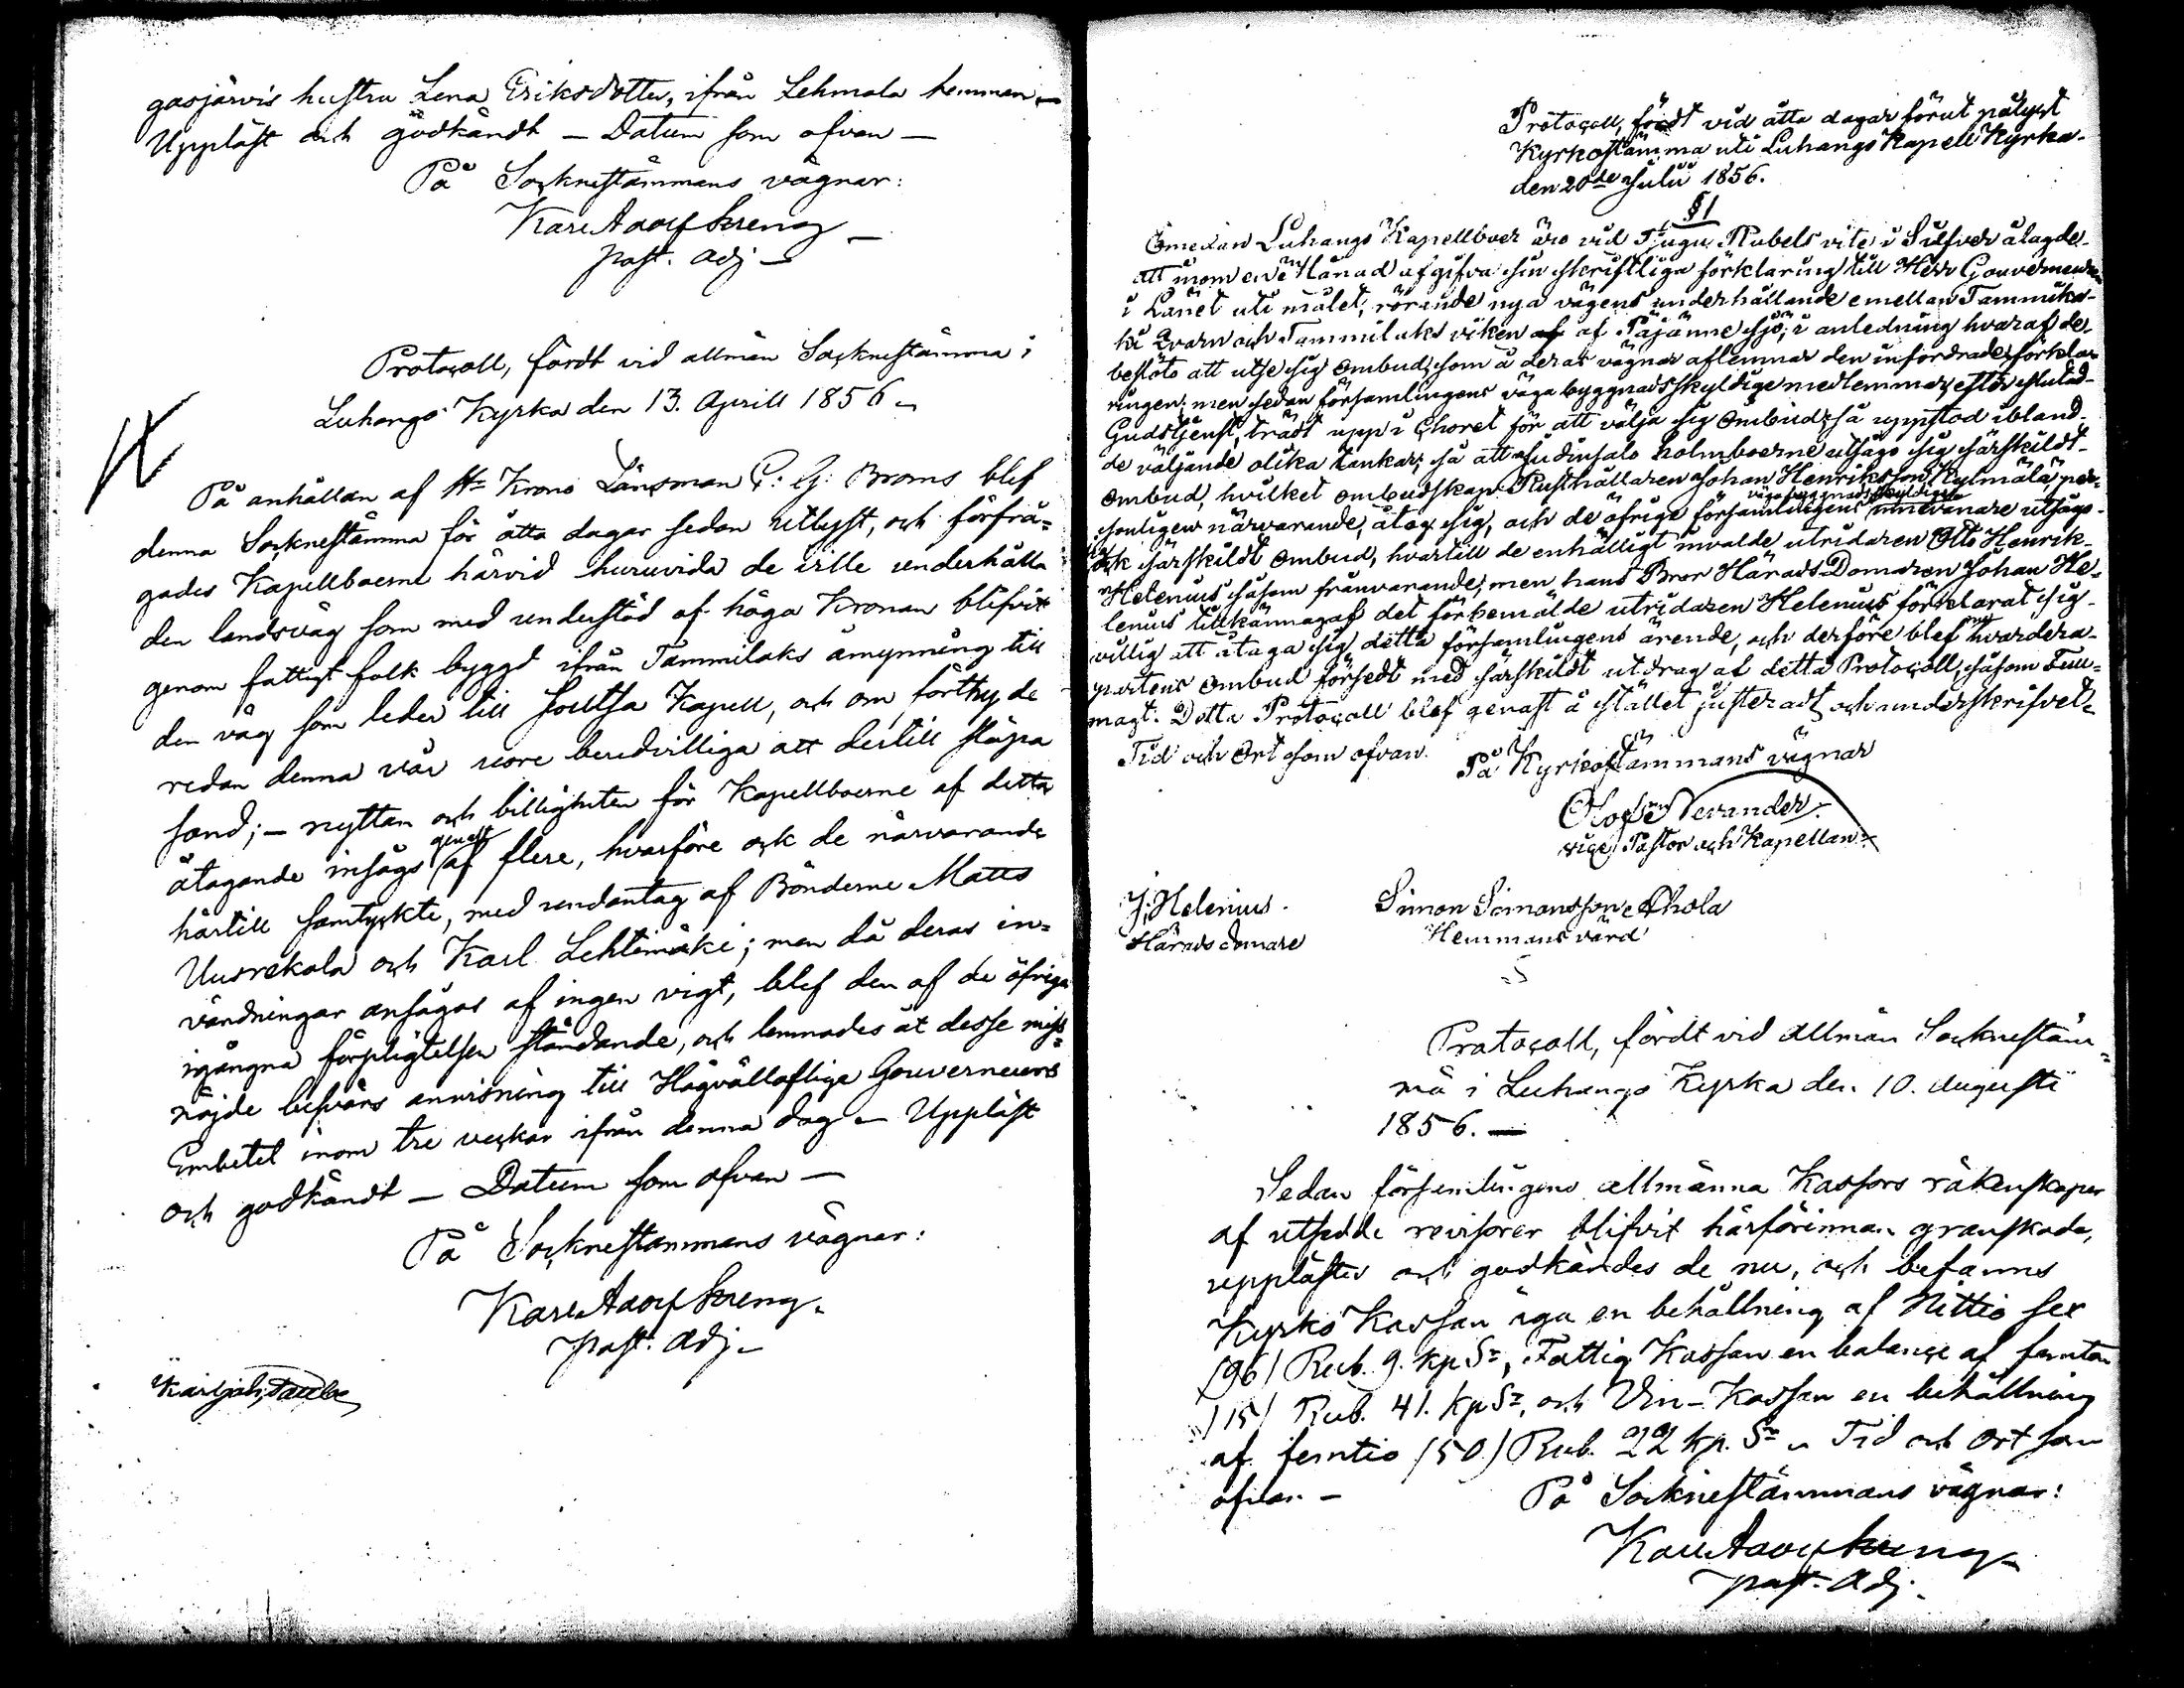 gasjärvis hustru Lena Eriksdotter, ifrån Lehmala hemman —
Uppläst och godkändt — Datum som ofvan —
På Socknestämmans vägnar:
Karl Adolf Sreng —
past. adj —
Protocoll, fördt vid allmän Socknestämma i
Luhango Kyrka den 13. Aprill 1856 —
På anhållan af Hr Krono Länsman G. G. Broms blef
denna Socknestämma för åtta dagar sedan utlyst, och förfrå=
gades Kapellboerne härvid huruvida de ville underhålla
den landsväg som med understöd af höga Kronan blifvit
genom fattigt folk byggd ifrån Tammilaks åmynning till
den väg som leder till Joutsa Kapell, och om förthy de
redan denna vår vore beredvilliga att dertill släpa
sand; — nyttan och billigheten för Kapellboerne af detta
åtagande insågs genast af flere, hvarföre ock de närvarande
härtill samtyckte, med undantag af Bönderne Matts
Uusrekola och Karl Lehtimäki; men då deras in=
vändningar ansågos af ingen vigt, blef den af de öfriga
ingångna förpligtelsen ståndande, och lemnades åt desse miss=
nöjde besvärs anvisning till Högvällofliga Gouverneurs
Embetet inom tre veckor ifrån denna dag — Uppläst
och godkändt — Datum som ofvan —
På Socknestammans vägnar:
Karl Adolf Sreng.
past. adj —
Protocoll, fördt vid åtta dagar förut pålyst
Kyrkostämma uti Luhango Kapell Kyrka
den 20de Julii 1856.
§ 1
Emedan Luhango Kapellboer äro vid Tjugu Rubels vite i Silfver ålagde
att inom en Månad afgifva sin skriftliga förklaring till Herr Gouverneuren
i Länet uti målet, rörande nya vägens underhållande emellan Tammika-
ki Qvarn och Tammilaks viken af Päjänne sjö; i anledning hvaraf de
beslöto att utse sig Ombud, som å deras vägnar aflemnar den infordrade förkla-
ringen; men sedan församlingens väga byggnadsskyldige medlemmar, efter slutad
Gudstjenst, trädt upp i Choret för att välja sig Ombud; så uppstod ibland
de väljande olika tankar, så att Judinsalo holmboerne utsågo sig särskildt
Ombud, hvilket ombudskap Rusthållaren Johan Henriksson Kylmälä, per-
sonligen närvarande, åtog sig, och de öfrige församlingens väga byggnadsskyldige innevånare utsågo
ock särskildt Ombud, hvartill de enhälligt invalde utridaren Otto Henrik
Helenius såsom frånvarande; men hans Bror Härads Domaren Johan He-
lenius tillkännagaf det förbemälde utridaren Helenius förklarat sig
villig att åtaga sig detta församlingens ärende, och derföre blef hvardera
partens Ombud försedt med särskildt utdrag af detta Protocoll, såsom Full-
magt. Detta Protocoll blef genast å stället justeradt och underskrifvet.
Tid och Ort som ofvan.
På Kyrkostämmans vägnar
Olof Nevander.
vice Pastor och Kapellan.
J. Helenius.
Häradsdomare
Simon Simonsson Ahola
Hemmans värd
Protocoll, fördt vid Allmän Socknestäm=
ma i Luhango Kyrka den 10. Augusti
1856. —
Sedan församlingens allmänna Kassors räkenskaper
af utsedde revisorer blifvit härförinnan granskade,
upplästes och godkändes de nu, och befanns
Kyrko Kassan äga en behållning af Nittio sex
(96) Rub. 9. kp Sr, Fattig Kassan en balance af femton
(15) Rub. 41. kp Sr, och Vin-Kassan en behållning
af femtio (50) Rub. 22 kp. Sr — Tid och Ort som
ofvan —
På Socknestämmans vägnar:
Karl Adolf Sreng
past. adj.